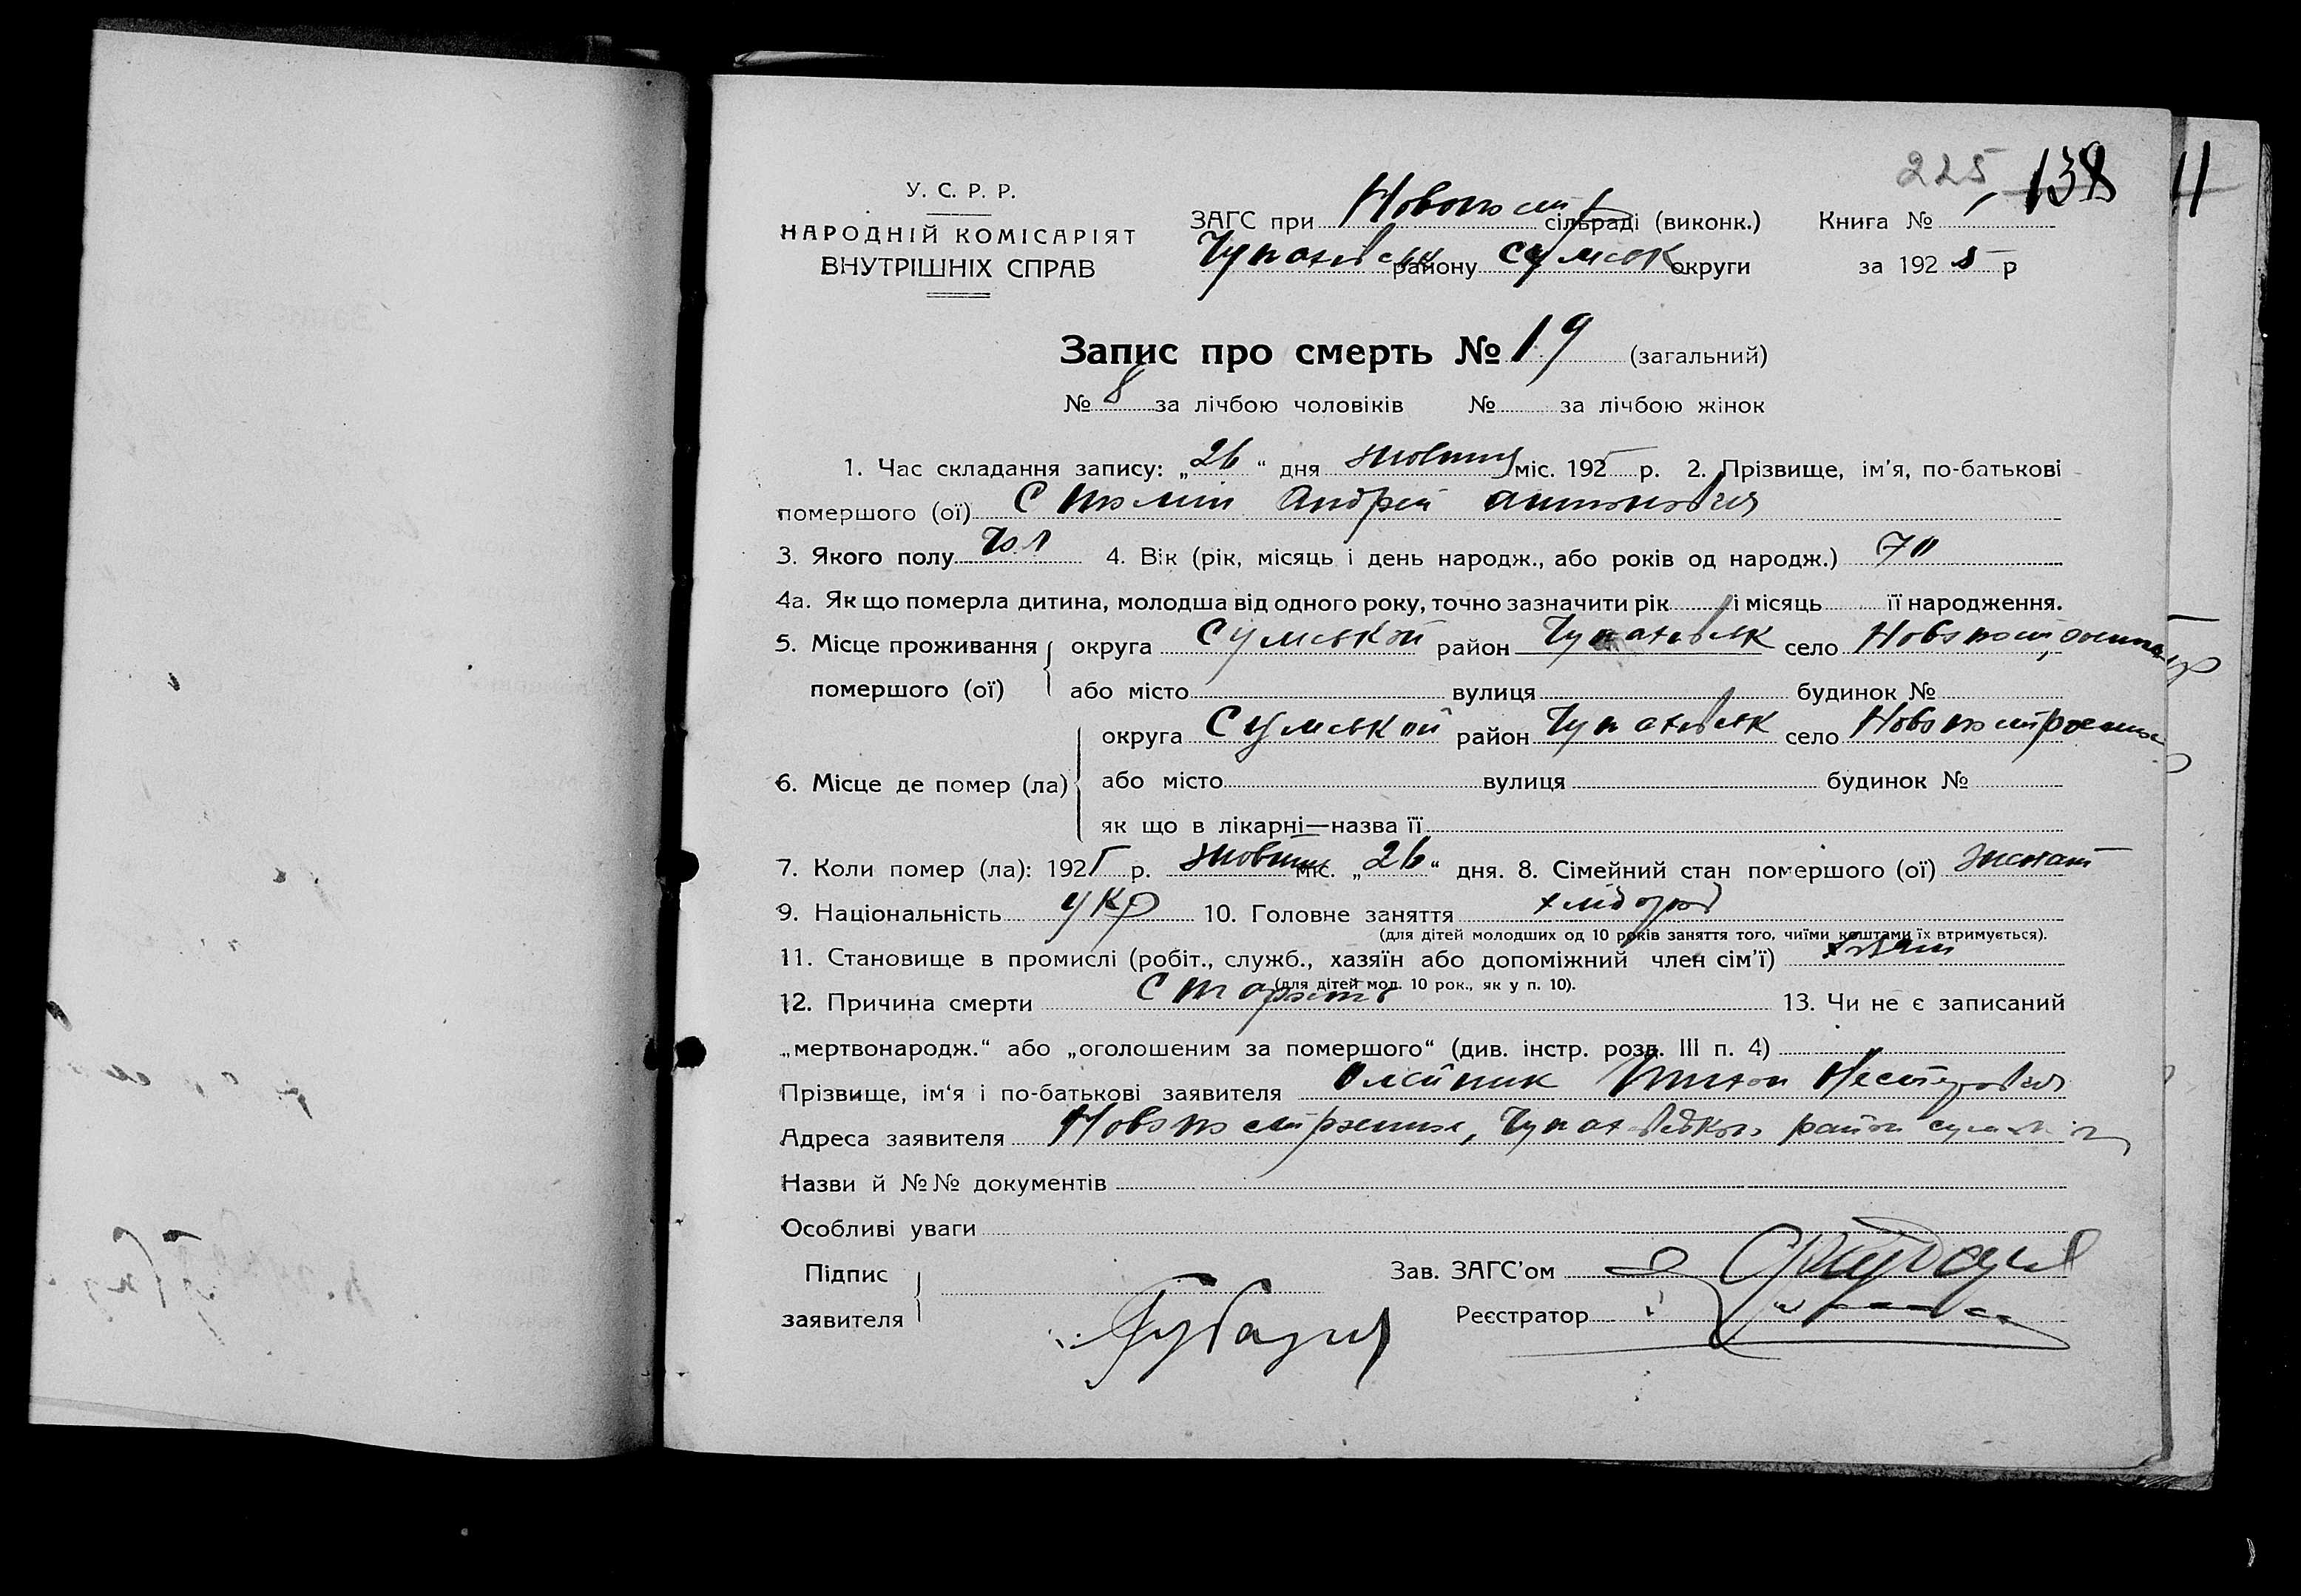 225, 138 11
У. С. Р. Р.
НАРОДНІЙ КОМІСАРІЯТ
ВНУТРІШНІХ СПРАВ
ЗАГС при сільраді (виконк.) Книга №
району Сумськ округи за 1925 р
Запис про смерть № 19 (загальний)
№ 8 за лічбою чоловіків № за лічбою жінок
1. Час складання запису: „26“ дня жовтня міс. 1925 р. 2. Прізвище, ім’я, по-батькові
помершого (ої) Андрій Антонович
3. Якого полу Чол 4. Вік (рік, місяць і день народж., або років од народж.) 70
4а. Як що померла дитина, молодша від одного року, точно зазначити рік і місяць її народження.
5. Місце проживання округа Сумської район Чупахівськ село
помершого (ої) або місто вулиця будинок №
округа Сумської район Чупахівськ село
6. Місце де помер (ла) або місто вулиця будинок №
як що в лікарні—назва її
7. Коли помер (ла): 1925 р. жовтня міс. „26“ дня. 8. Сімейний стан помершого (ої) жонат
9. Національність укр 10. Головне заняття хлібороб
(для дітей молодших од 10 років заняття того, чиїми коштами їх втримується).
11. Становище в промислі (робіт., служб., хазяїн або допоміжний член сім’ї) хазяїн
(для дітей мол. 10 рок., як у п. 10).
12. Причина смерти 13. Чи не є записаний
„мертвонародж.“ або „оголошеним за помершого“ (див. інстр. розд. III п. 4)
Прізвище, ім‘я і по-батькові заявителя Олейник Нестерович
Адреса заявителя район
Назви й №№ документів
Особливі уваги
Підпис Зав. ЗАГС’ом
заявителя Реєстратор